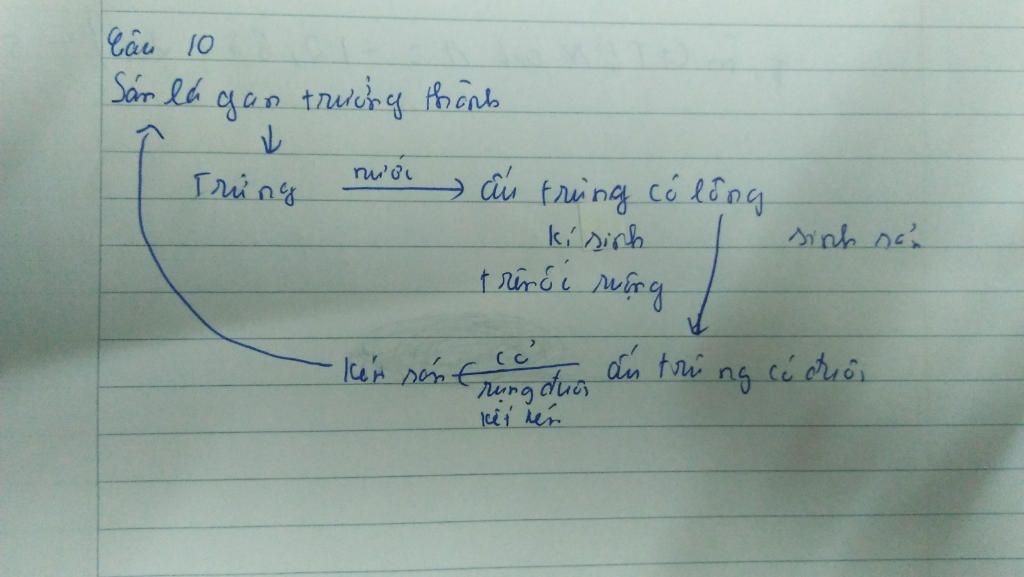 Câu 10
Sán lá gan trưởng thành
Trứng nước ấu trùng có lông
kí sinh sinh sản
trên ốc ruộng
kén sán cỏ ấu trùng có đuôi
rụng đuôi
kết kén